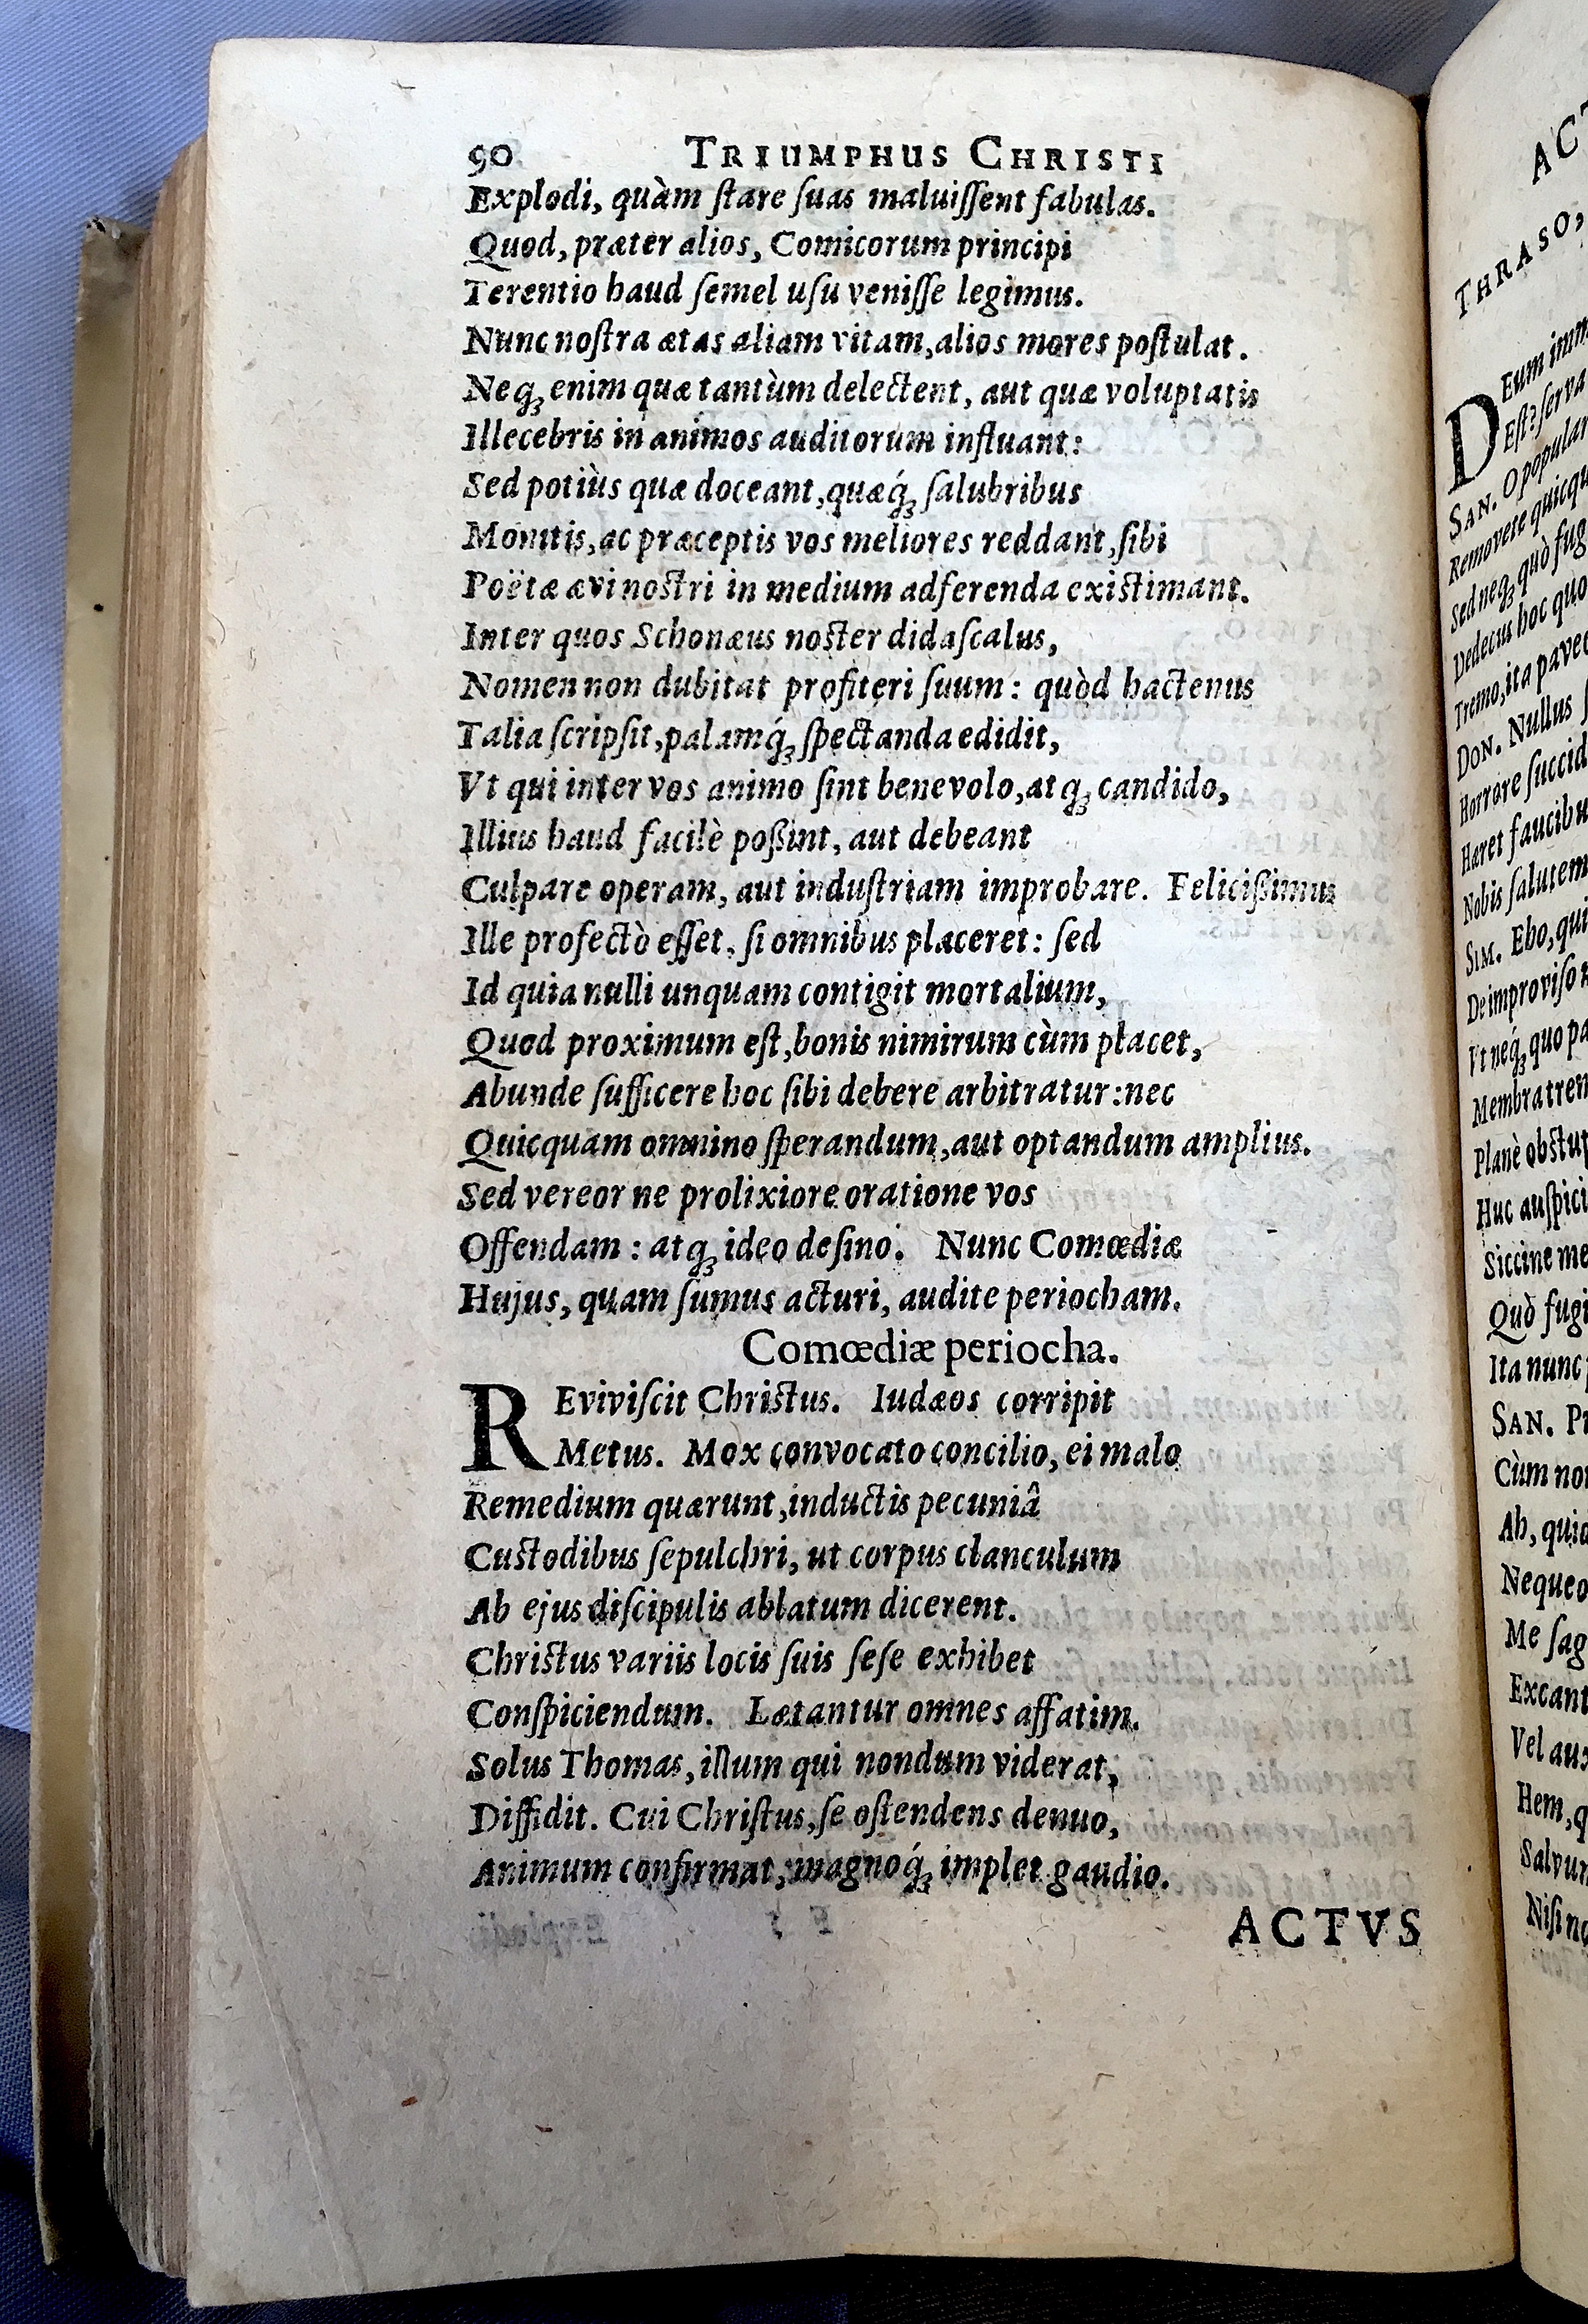 90 TRIUMPHUS CHRISTI
Explodi, quàm ſtare ſuas maluiſſent fabulas.
Quod, præter alios, Comicorum principi
Terentio haud ſemel uſu veniſſe legimus.
Nunc noſtra ætas aliam vitam, alios mores poſtulat.
Neq́; enim quæ tantùm delectent, aut quæ voluptatis
Illecebris in animos auditorum influant:
Sed potiùs quæ doceant, quæq́; ſalubribus
Monitis, ac præceptis vos meliores reddant, ſibi
Poëtæ ævi noſtri in medium adferenda exiſtimant.
Inter quos Schonæus noſter didaſcalus,
Nomen non dubitat profiteri ſuum: quòd hactenus
Talia ſcripſit, palamq́; ſpectanda edidit,
Vt qui inter vos animo ſint benevolo, atq; candido,
Illius haud facilè poßint, aut debeant
Culpare operam, aut induſtriam improbare. Felicißimus
Ille profectò eſſet, ſi omnibus placeret: ſed
Id quia nulli unquam contigit mortalium,
Quod proximum eſt, bonis nimirum cùm placet,
Abunde ſufficere hoc ſibi debere arbitratur: nec
Quicquam omnino ſperandum, aut optandum amplius.
Sed vereor ne prolixiore oratione vos
Offendam: atq; ideo deſino. Nunc Comœdiæ
Hujus, quam ſumus acturi, audite periocham.
Comœdiæ periocha.
REviviſcit Chriſtus. Iudæos corripit
Metus. Mox convocato concilio, ei malo
Remedium quærunt, inductis pecuniâ
Cuſtodibus ſepulchri, ut corpus clanculum
Ab ejus diſcipulis ablatum dicerent.
Chriſtus variis locis ſuis ſeſe exhibet
Conſpiciendum. Lætantur omnes affatim.
Solus Thomas, illum qui nondum viderat,
Diffidit. Cui Chriſtus, ſe oſtendens denuo,
Animum confirmat, magnoq́; implet gaudio.
ACTVS
THRASO,
DEum
Eſt? ſerva
SAN. O
Removete
Sed neq́; quò
Dedecus hoc
Tremo, ita
DON. Nullus
Horrore
Hæret
Nobis
SIM. Eho,
De improviſo
Vt neq́; quo
Membra
Planè
Huc
Siccine me
Quò
Ita nunc
SAN.
Cùm
Ah,
Nequeo
Me
Vel
Hem,